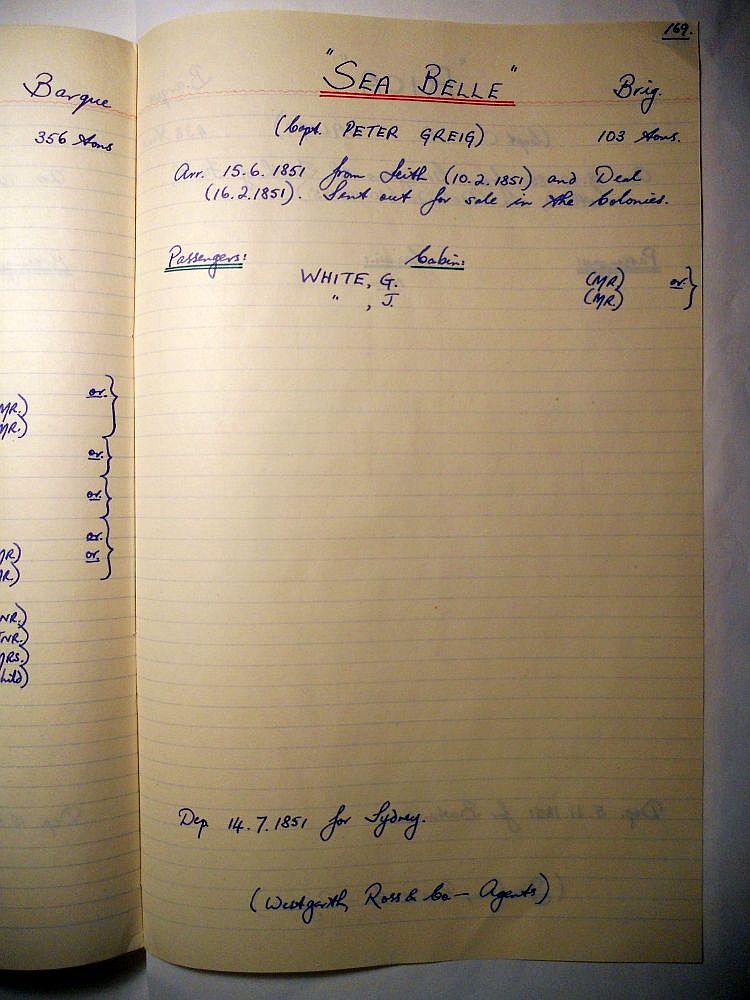 Barque
356 tons
MR.)
MR.)
or.
or.
or.
or.
or.
MR)
MR.)
NR.)
NR.)
MRS.)
hild)
169.
"SEA BELLE"
Brig.
(Capt. PETER GREIG)
103 tons.
Arr. 15.6.1851 from Leith (10.2.1851) and Deal
(16.2.1851). Sent out for sale in the Colonies.
Passengers:
Cabin:
WHITE, G. (MR) or.
" , J. (MR.)
Dep 14.7.1851 for Sydney.
(Westgarth, Ross & Co — Agents)